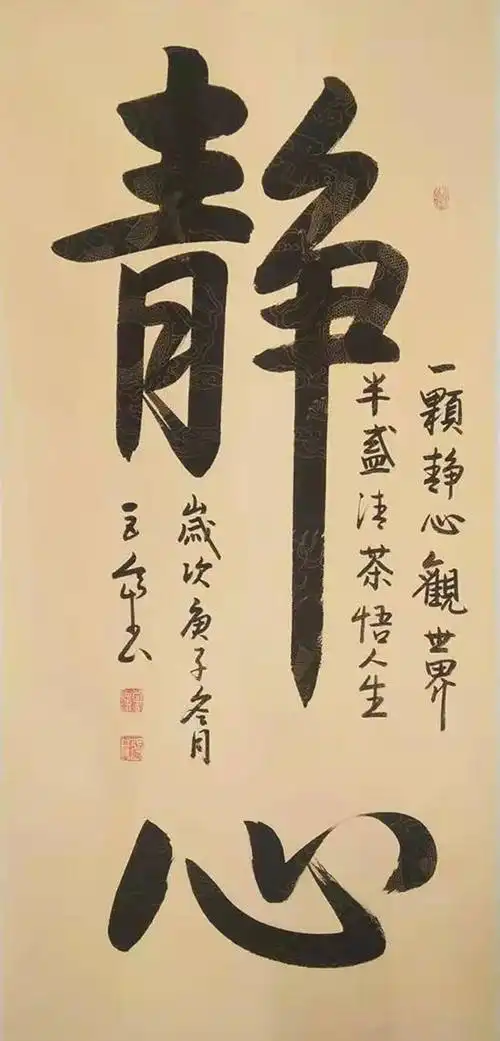 静心
一顆静心觀世界
半盞清茶悟人生
歲次庚子冬月
書